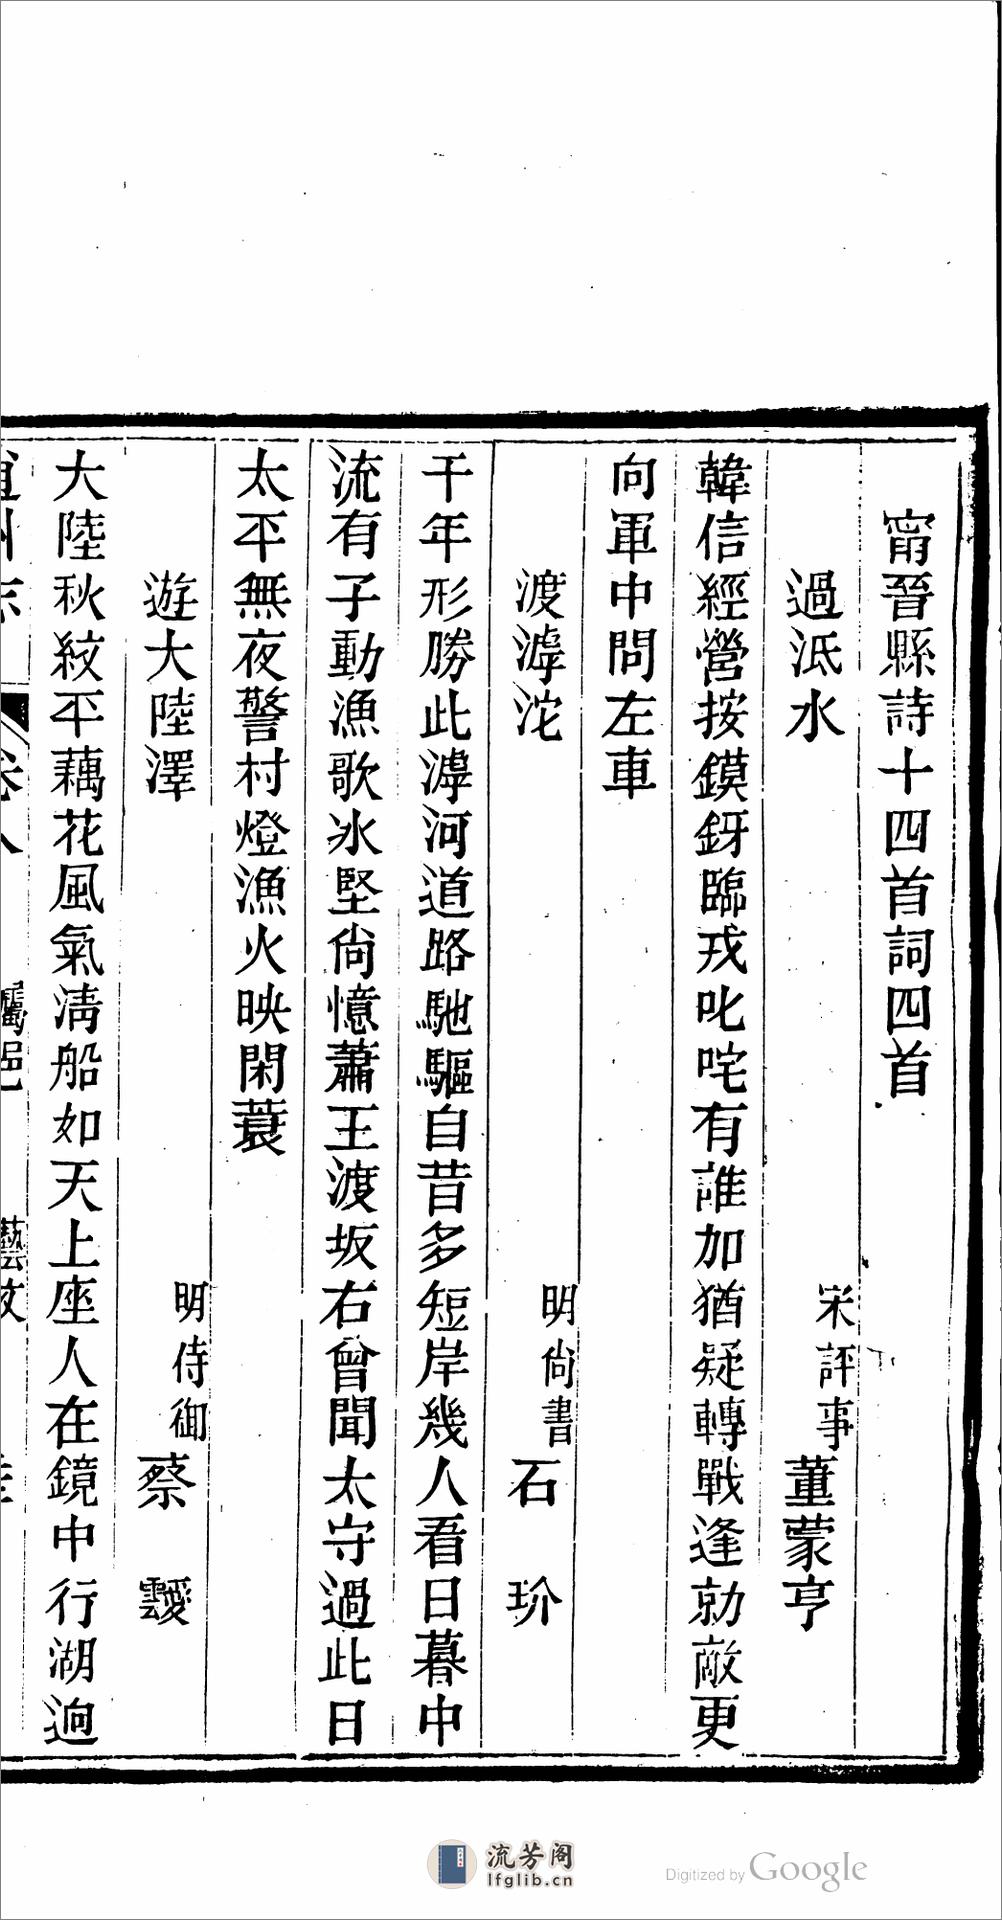 甯晉縣詩十四首詞四首
過泜水 宋評事 董蒙亨
韓信經營按鏌釾臨戎叱咤有誰加猶疑轉戰逢勍敵更
向軍中問左車
渡滹沱 明尙書 石玠
千年形勝此滹河道路馳驅自昔多短岸幾人看日暮中
流有子動漁歌冰堅尙憶蕭王渡坂右曾聞太守過此日
太平無夜警村燈漁火映閑蓑
遊大陸澤 明侍御 蔡靉
大陸秋紋平藕花風氣淸船如天上座人在鏡中行湖逈
州志 卷八 屬邑 藝文
流芳阁
lfglib.cn
Digitized by Google